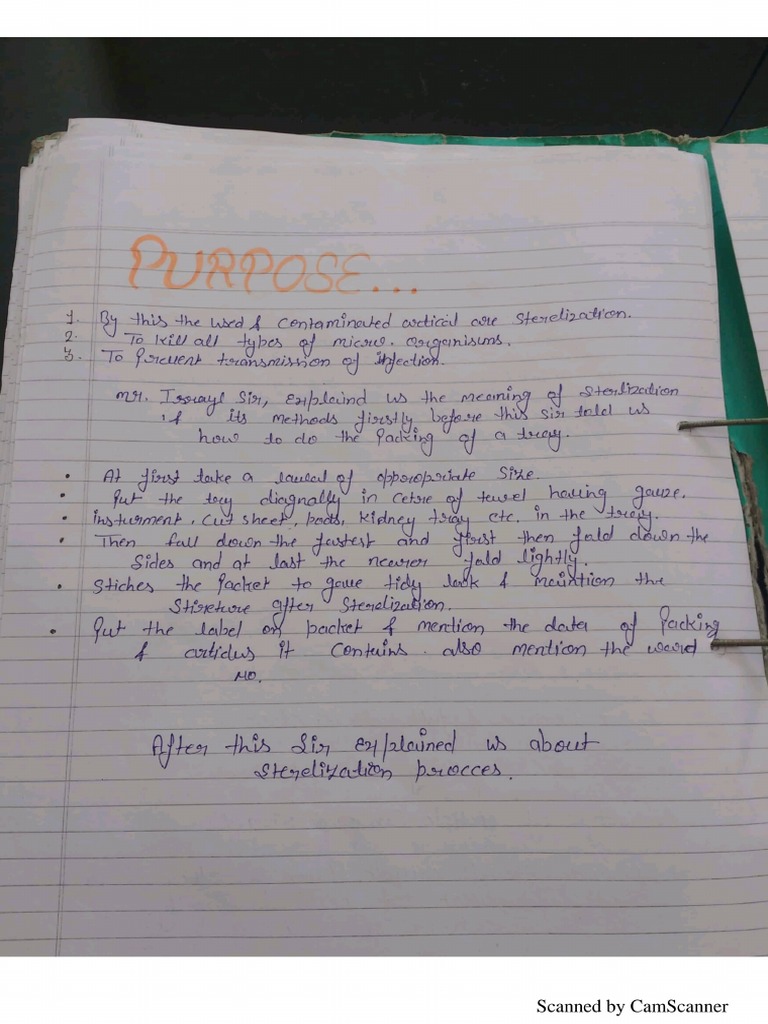 PURPOSE...
1. By this the used & contaminated artical are sterelization.
2. To kill all types of micro. organisms.
3. To prevent transmission of infection.
Mr. Israyl Sir, explaind us the meaning of sterlization
& its methods firstly before this sir told us
how to do the packing of a tray.
• At first take a of appropriate size.
• Put the tey diagnally in cetre of tewel having gauze.
• insturment, cut sheet, pads, kidney tray etc. in the tray.
• Then fall down the fastest and first then fold down the
sides and at last the nearer fold lightly.
• Stiches the packet to gave tidy look & the
after sterelization.
• Put the label on packet & mention the data of packing
& articles it contains. also mention the ward
no.
After this Sir explained us about
sterelization procces.
Scanned by CamScanner